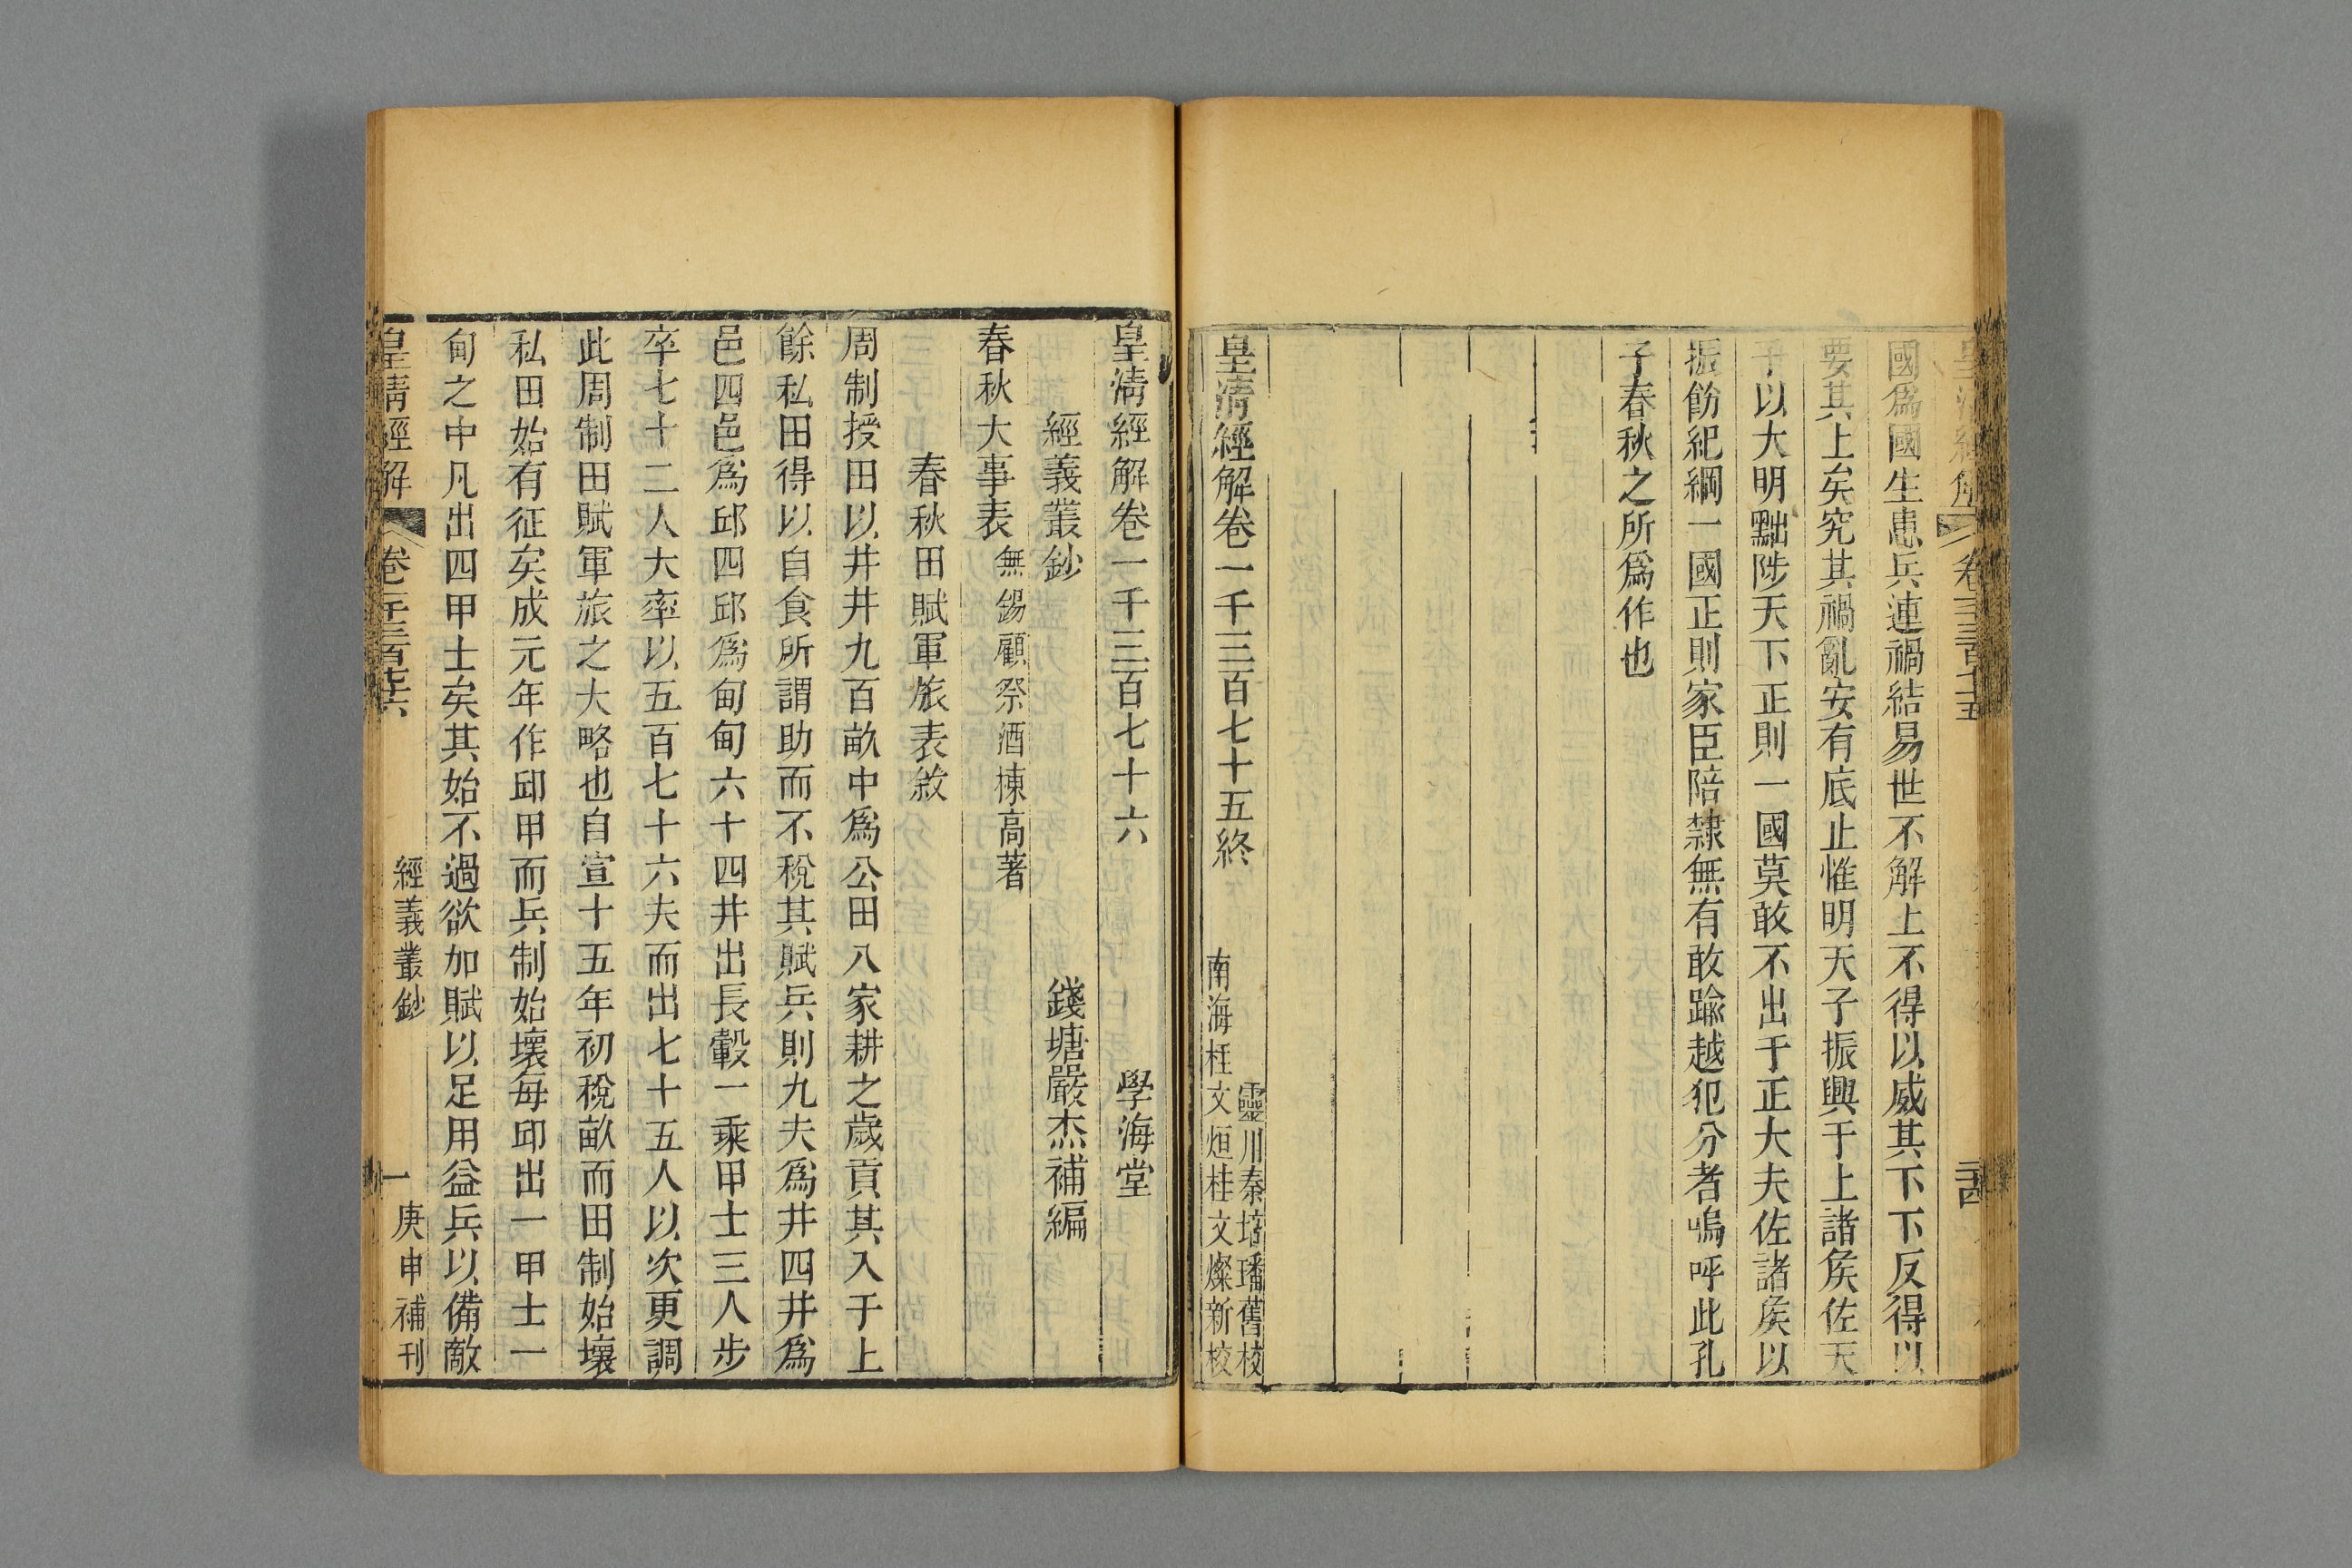 國爲國生患兵連禍結易世不解上不得以威其下下反得以
要其上矣究其禍亂安有底止惟明天子振興于上諸侯佐天
子以大明黜陟天下正則一國莫敢不出于正大夫佐諸侯以
振飭紀綱一國正則家臣陪隸無有敢踰越犯分者嗚呼此孔
子春秋之所爲作也
皇淸經解卷一千三百七十五終
靈川秦培璠舊校
南海桂文烜桂文燦新校
皇淸經解卷一千三百七十六 學海堂
經義叢鈔 錢塘嚴杰補編
春秋大事表 無錫顧祭酒棟高著
春秋田賦軍旅表敘
周制授田以井井九百畝中爲公田八家耕之歲貢其入于上
餘私田得以自食所謂助而不稅其賦兵則九夫爲井四井爲
邑四邑爲邱四邱爲甸甸六十四井出長轂一乘甲士三人步
卒七十二人大率以五百七十六夫而出七十五人以次更調
此周制田賦軍旅之大略也自宣十五年初稅畝而田制始壞
私田始有征矣成元年作邱甲而兵制始壞每邱出一甲士一
甸之中凡出四甲士矣其始不過欲加賦以足用益兵以備敵
皇淸經解 卷一千三百七十六 經義叢鈔 一 庚申補刊